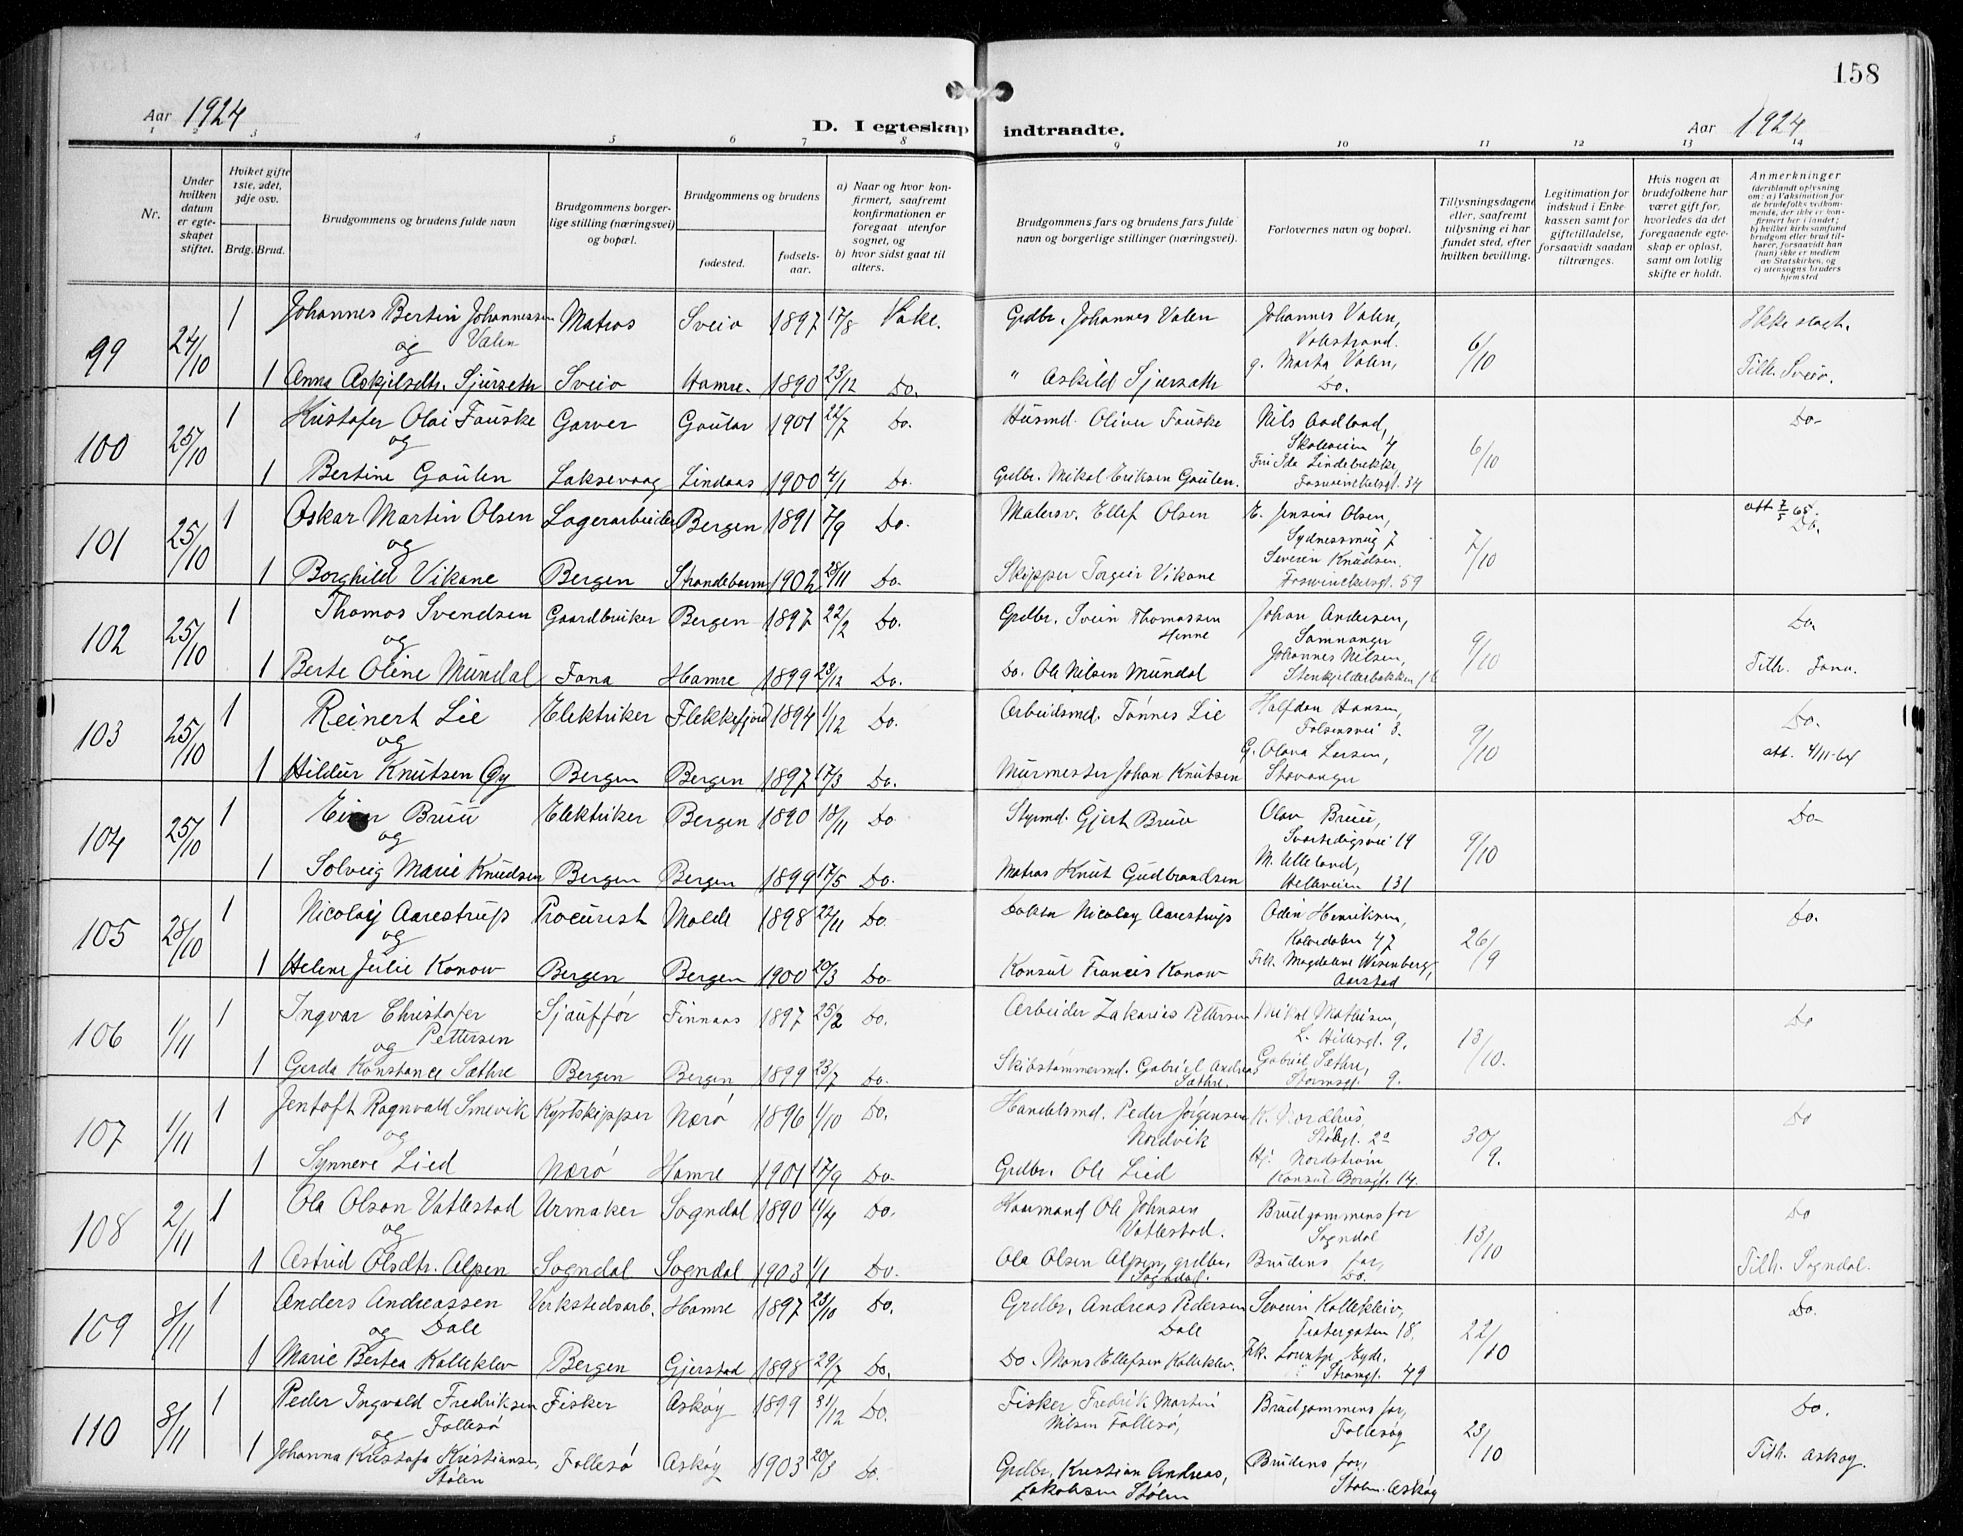 158
Aar 1924
D. I egteskap indtraadte.
Aar 1924
1 2 3 4 5 6 7 8 9 10 11 12 13 14
Nr.
Under hvilken datum er egteskapet stiftet.
Hvilket gifte 1ste, 2det, 3dje osv.
Brdg. Brud.
Brudgommens og brudens fulde navn
Brudgommens borgerlige stilling (næringsvei) og bopæl.
Brudgommens og brudens
fødested. fødselsaar.
a) Naar og hvor konfirmert, saafremt konfirmationen er foregaat utenfor sognet, og
b) hvor sidst gaat til alters.
Brudgommens fars og brudens fars fulde navn og borgerlige stillinger (næringsvei).
Forlovernes navn og bopæl.
Tillysningsdagene eller, saafremt tillysning ei har fundet sted, efter hvilken bevilling.
Legitimation for indskud i Enkekassen samt for giftetilladelse, forsaavidt saadan tiltrænges.
Hvis nogen av brudefolkene har været gift før, hvorledes da det foregaaende egteskap er opløst, samt om lovlig skifte er holdt.
Anmerkninger
(deriblandt oplysning om: a) Vaksination for de brudefolks vedkommende, der ikke er konfirmert her i landet; b) hvilket kirkesamfund brudgom eller brud tilhører, forsaavidt han (hun) ikke er medlem av Statskirken, og c) utensogns bruders hjemsted
99 24/10 1 Johannes Bertin Johannessen Valen Matros Sveio 1897 17/8 Grdbr. Johannes Valen Johannes Valen, 6/10
og
1 Anna Askjelsdtr. Sjursæth Sveio Hamre. 1890 23/12 Do. " Askild Sjursæth g. Marta Valen, Do. Tilh. Sveio.
100 25/10 1 Kristofer Olai Fauske Garver Gaular 1901 22/7 Do. Husmd. Oliver Fauske Nils Aadland, Skoleveien 4 6/10 Do
og
1 Bertine Gaulen Laksevaag Lindaas 1900 4/1 Do. Grdbr. Mikal Eriksen Gaulen. Fru Ida Lindebrekke, 34
101 25/10 1 Oskar Martin Olsen Lagerarbeider Bergen 1891 7/9 Do. Malersv. Ellef Olsen E. Jensine Olsen, Sydnessmug 7 7/10 att 7/5 65. Do.
og
1 Borghild Vikane Bergen Strandebarm 1902 28/11 Do. Skipper Torgeir Vikane Severin Knudsen. 59
102 25/10 1 Thomas Svendsen Gaardbruker Bergen 1897 22/2 Do. Grdbr. Svein Thomassen Johan Andersen, Samnanger 9/10 Do.
og
1 Berte Oline Mundal Fana Hamre 1899 23/12 Do. Do. Ole Nilsen Mundal Johannes Nilsen, Stenkjelderbakken Tilh. Fana.
103 25/10 1 Reinert Lie Elektriker Flekkefjord 1894 1/12 Do. Arbeidsmd. Tønnes Lie Halfdan Hansen, 9/10 Do.
og
1 Hildur Knutsen Gy Bergen Bergen 1897 17/3 Do. Murmester Johan Knutsen G. Olava Larsen, Stavanger att. 4/11-64
104 25/10 1 Einar Bruu Elektriker Bergen 1890 18/11 Do Styrmd. Gjert Bruu Olav Bruu, Svartedigsvei 19 9/10 Do
og
1 Solveig Marie Knudsen Bergen Bergen 1899 17/5 Do. Matros Knut Gudbrandsen M. Ulleland, Helleveien 131
105 28/10 1 Nicolay Aarestrup Procurist Molde 1898 22/11 Do. Doktor Nicolay Aarestrup Odin Henriksen, Kalvedalen 47 26/9 Do.
og
1 Helene Julie Konow Bergen Bergen 1900 20/3 Do. Konsul Francis Konow Frk. Magdalene Wesenberg, Aarstad
106 1/11 1 Ingvar Christofer Pettersen Sjauffør Finnaas 1897 25/2 Do. Arbeider Zakarias Pettersen Mikal Mathisen, L. Hillesgt. 9. 13/10. Do
og
1 Gerda Konstance Sæthre Bergen Bergen 1899 23/7 Do. Skibstømmermd. Gabriel Andreas Sæthre. Gabriel Sæthre, Stormsgt. 9.
107 1/11 1 Jentoft Ragnvald Smevik Kystskipper Nærø 1896 1/10 Do. Handelsmd. Peder Jørgensen Nordvik K. Nordhus, Stølegt. 2a 30/9. Do
og
1 Synneve Lied Nærø Hamre 1901 17/9 Do. Grdbr. Ole Lied Hj. Nordstrøm Konsul Børsgt. 14.
108 2/11 1 Ola Olson Vatlestad Urmaker Sogndal 1890 11/4 Do. Ole Johnsen Vatlestad. Brudgommens far Sogndal 13/10 Do
og
1 Astrid Olsdtr. Alpen Sogndal Sogndal 1903 1/1 Do. Ola Olsen Alpen, grdbr. Sogndal. Brudens far, Do. Tilh. Sogndal.
109 8/11 1 Anders Andreassen Dale Verkstedsarb. Hamre 1897 23/10 Do. Grdbr. Andreas Pedersen Dale Severin Kalleklev, 18. 22/10 Do.
og
1 Marie Bertea Kalleklev Bergen Gjerstad 1898 29/7 Do. Do. Mons Ellefsen Kalleklev. Frk. Lorentze Eyde. Strømgt. 49
110 8/11 1 Peder Ingvald Fredriksen Follesø Fisker Askøy 1899 31/12 Do. Fisker Fredrik Martin Nilsen Follesø, Brudgommens far, Follesøy 23/10 Do.
og
1 Johanna Kristofa Kristiansen, Stølen Follesø Askøy 1903 20/3 Do. Grdbr. Kristian Andreas, Jakobsen Stølen Brudens far, Stølen. Askøy Tilh. Askøy.